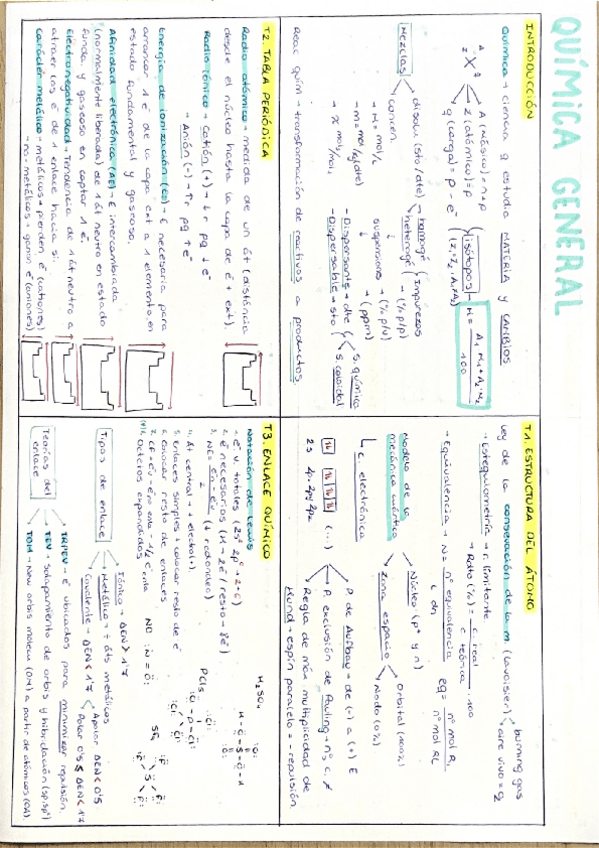 QUÍMICA GENERAL
INTRODUCCIÓN
Química → ciencia q estudia MATERIA y CAMBIOS
A (másico) = n + p
Z (atómico) = p
q (carga) = p - e⁻
isótopos
(Z₁=Z₂ · A₁≠A₂)
M = A₁·M₁ + A₂·M₂ / 100
Mezclas
disolu (sto/dte)
homogé
heterogé
impurezas
(% p/p)
suspensiones → (% p/v)
(ppm)
concen
→ M = mol/L
→ m = mol/kg(dte)
→ X mol/mol
- Dispersante → dte
- Dispersable → sto
S. química
S. coloidal
Reac quím → transformación de reactivos a productos.
T1. ESTRUCTURA DEL ÁTOMO
Ley de la conservación de la m (Lavoisier)
burning gas
aire vivo = O₂
→ Estequiometría → r. limitante
→ Rdto (%) = c. real / c. teórica · 100
→ Equivalencia → N = nº equivalencia / L dn
eq = nº mol R₁ / nº mol R₂
Modelo de la mecánica cuántica
Núcleo (p⁺ y n)
Zona espacio
Orbital (100%)
Nodo (0%)
c. electrónica
2s 2px 2py 2pz
(...)
P. de Aufbau → de (-) a (+) E
P. exclusión de Pauling → nº c. ≠
Regla de máx multiplicidad de
Hund → espín paralelo = - repulsión
T2. TABLA PERIÓDICA
Radio atómico → medida de un át (distancia
desde el núcleo hasta la capa de é + ext).
Radio iónico → Catión (+) → ↓ r pq ↓ e⁻
→ Anión (-) → ↑ r pq ↑ e⁻
Energía de ionización → E necesaria para
arrancar 1 é de la capa ext a 1 elemento en
estado fundamental y gaseoso.
Afinidad electrónica (AE) → E intercambiada
(normalmente liberada) de 1 át neutro en estado
funda y gaseoso en captar 1 é.
Electronegatividad → Tendencia de 1 át neutro a
atraer los é de 1 enlace hacia sí.
Carácter metálico → metálicos → pierden é (cationes)
→ no-metálicos → ganan é (aniones)
T3. ENLACE QUÍMICO
Notación de Lewis
1. é v. totales
2. é necesarios (H → 2é / resto → 8é)
3. NE = én - év / 2 (↓ redondeo)
4. Át central → + electro(+).
5. Enlaces simples + colocar resto de é
6. colocar resto de enlaces
Octetos expandidos
NO :N = O:
PCl₅
SF₄
H₂SO₄
Tipos de enlace
Iónico → ΔEN > 1'7
Metálico → ÷ áts metálicos
Covalente → ΔEN < 1'7
Apolar ΔEN < 0'5
Polar 0'5 ≤ ΔEN < 1'7
Teorías del enlace
TRPEV → é ubicados para minimizar repulsión.
TEV → solapamiento de orbis y hibridación
TOM → New orbis molecu (OM) a partir de atómicos (OA).